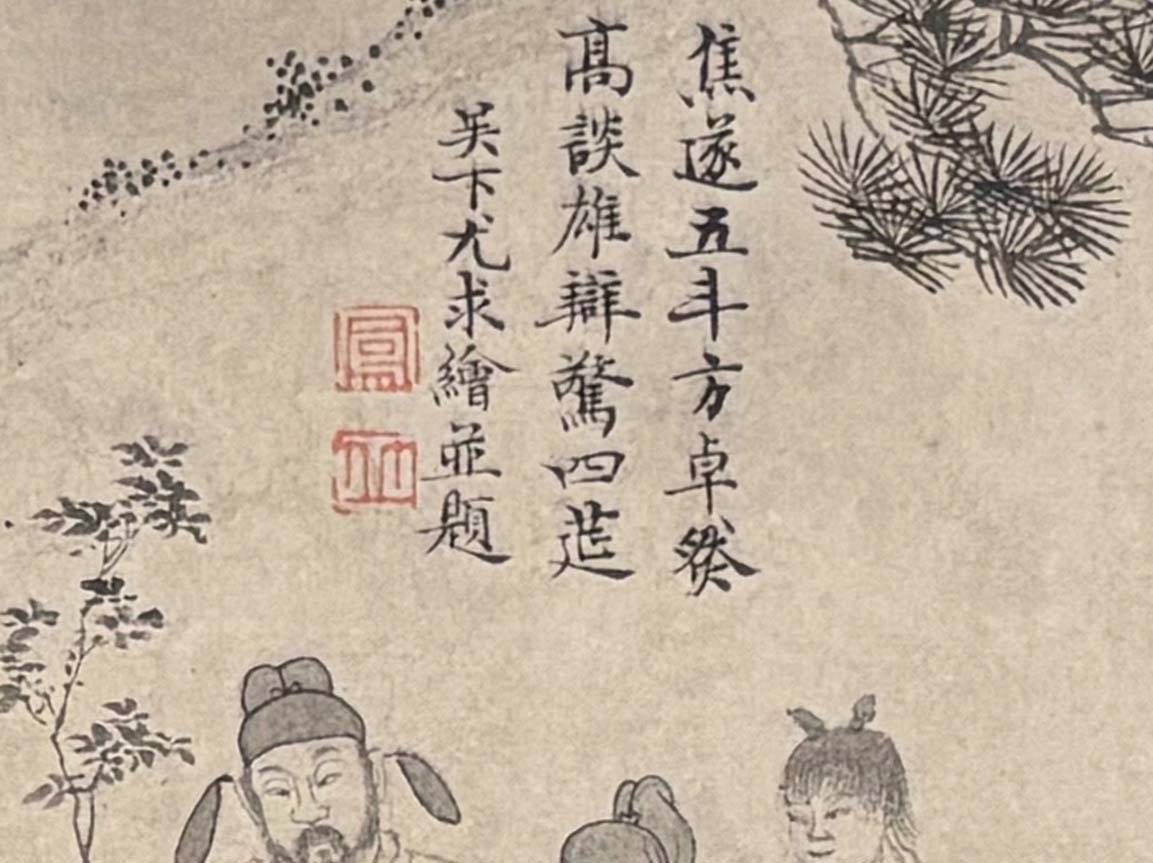 焦遂五斗方卓然
高談雄辯驚四莚
吳下尤求繪並題